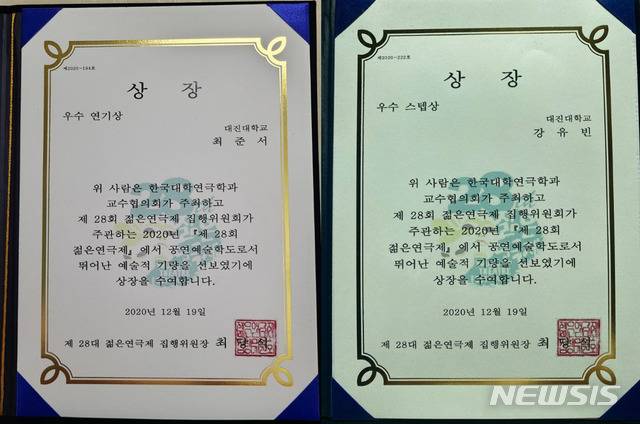 제2020-194호
상 장
우수 연기상
대진대학교
최 준 서
위 사람은 한국대학연극학과
교수협의회가 주최하고
제 28회 젊은연극제 집행위원회가
주관하는 2020년 『제 28회
젊은연극제』에서 공연예술학도로서
뛰어난 예술적 기량을 선보였기에
상장을 수여합니다.
2020년 12월 19일
제 28대 젊은연극제 집행위원장 최
제2020-222호
상 장
우수 스텝상
대진대학교
강 유 빈
위 사람은 한국대학연극학과
교수협의회가 주최하고
제 28회 젊은연극제 집행위원회가
주관하는 2020년 『제 28회
젊은연극제』에서 공연예술학도로서
뛰어난 예술적 기량을 선보였기에
상장을 수여합니다.
2020년 12월 19일
제 28대 젊은연극제 집행위원장 최
NEWSIS